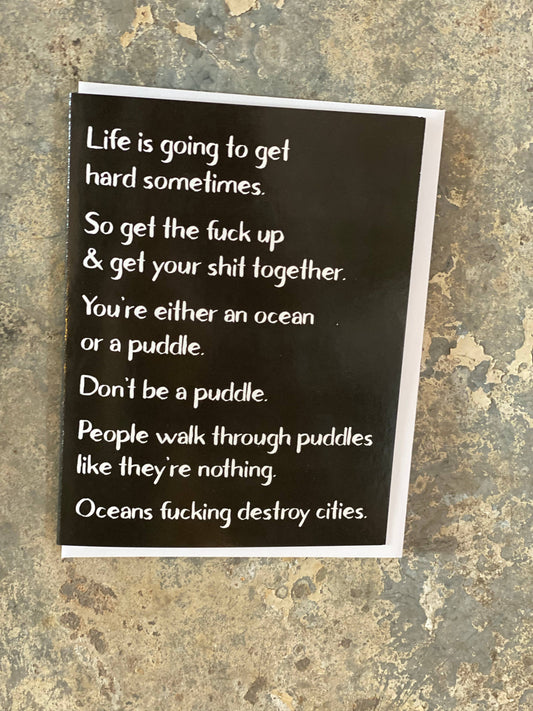 Life is going to get
hard sometimes.
So get the fuck up
& get your shit together.
You're either an ocean
or a puddle.
Don't be a puddle.
People walk through puddles
like they're nothing.
Oceans fucking destroy cities.